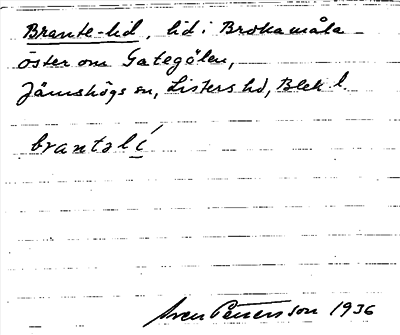 Brante-lid, lid i Brokamåla
öster om Gategölen,
Jämshögs sn, Listers hd, Blek l.
brantəlí
Sven Pettersson 1936